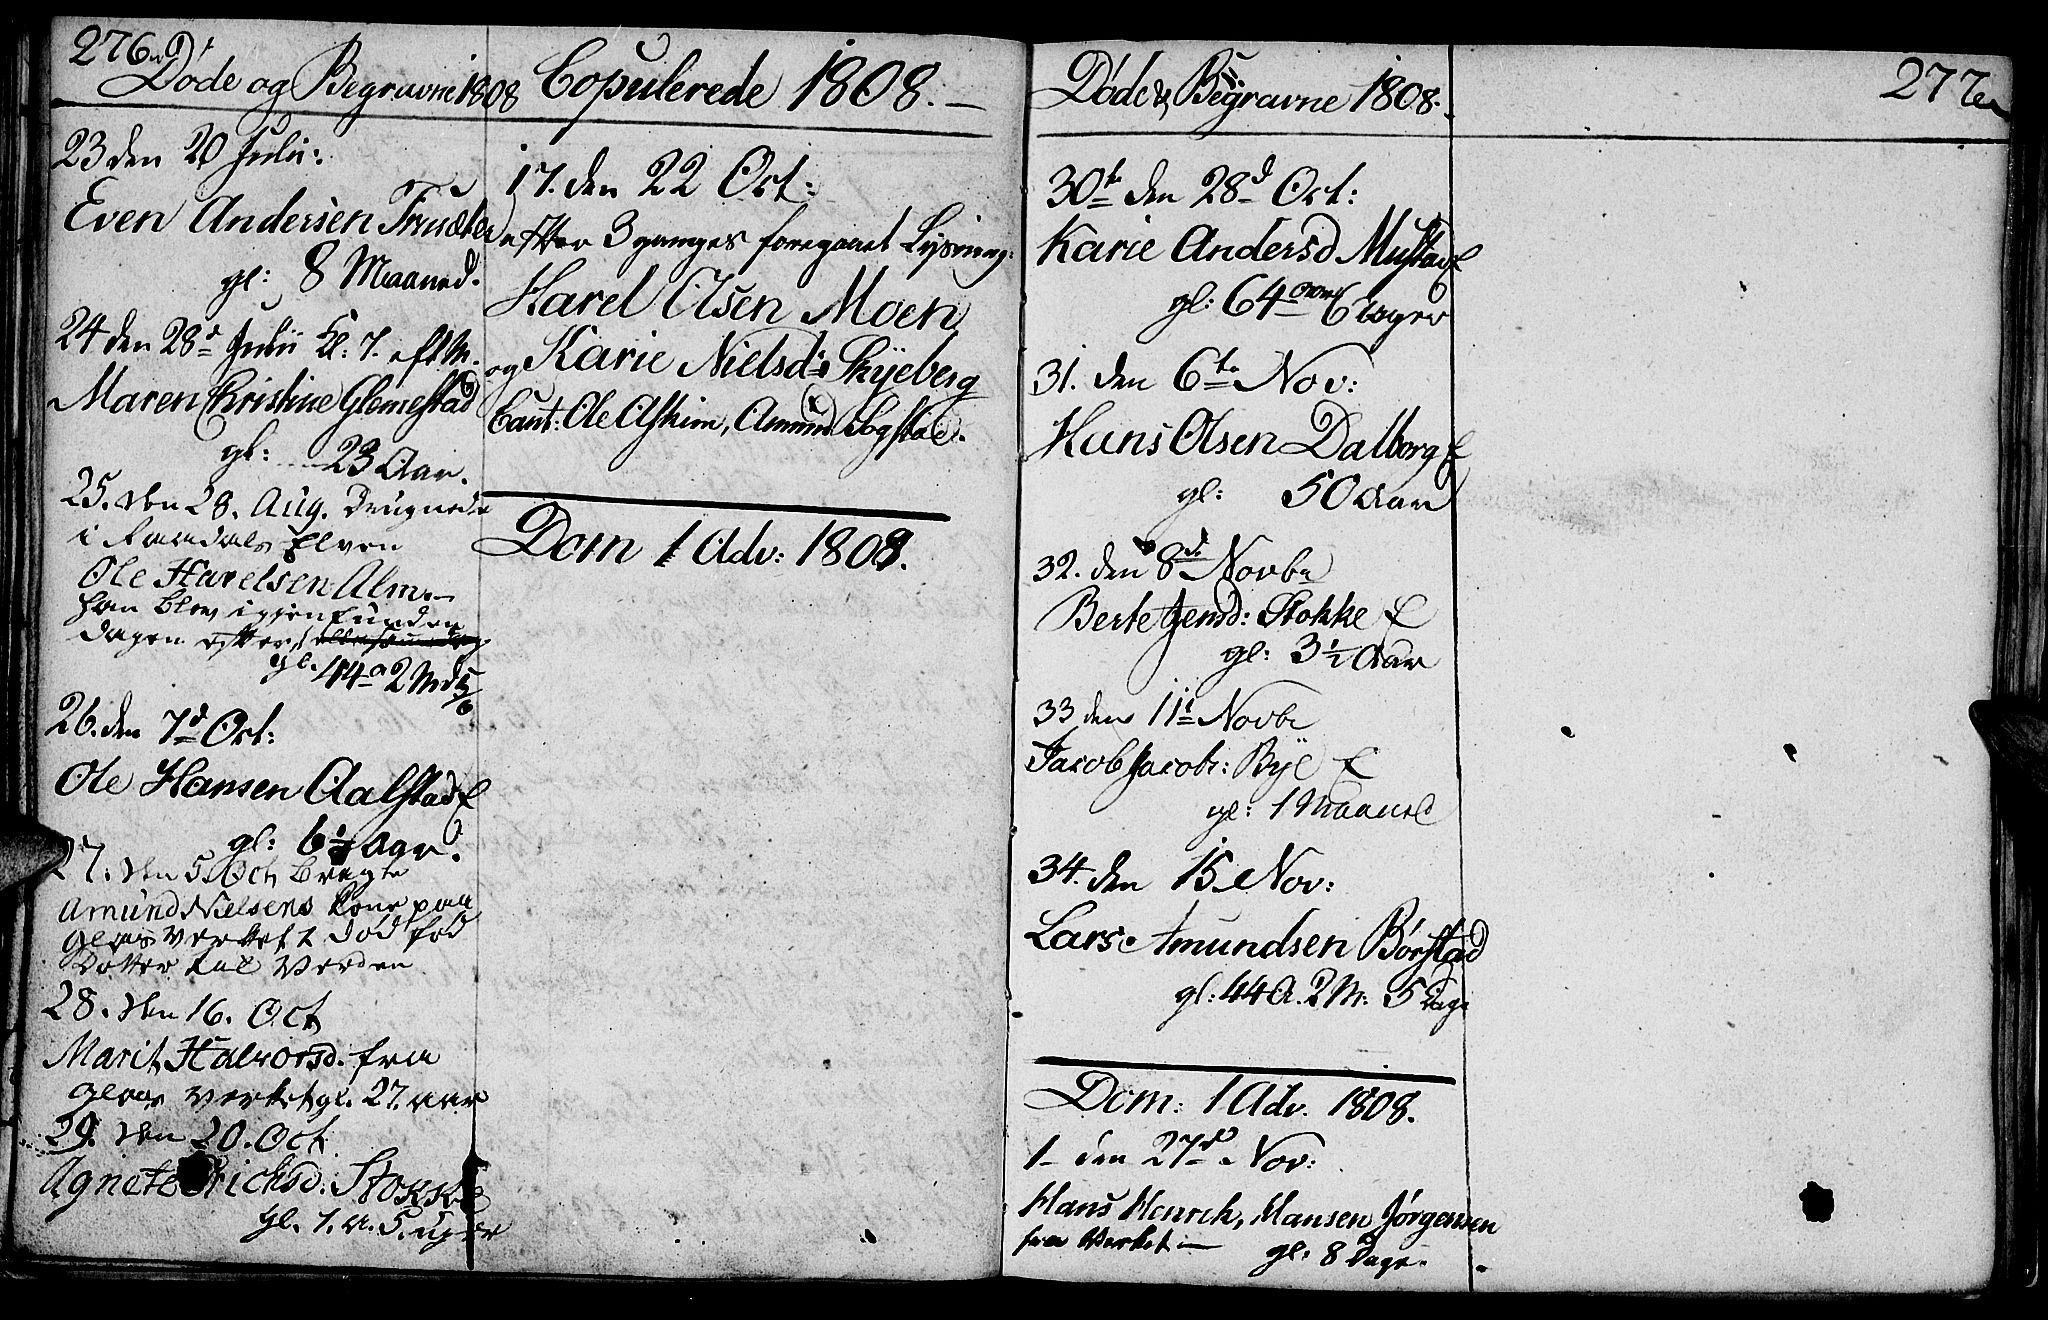 276
Døde og Begravne 1808
23 den 20 Julii:
Even Andersen
gl: 8 Maaned.
24 den 28d Julii Kl: 7. eft M.
Maren Christine Glemestad
gl: 23 Aar.
25. den 28. Aug. Drugnede
i Elven
Ole Harelsen Alm
han blev igjenfunden
dagen efter
gl. 44 a 2 Md
26. den 7d Oct:
Ole Hansen Aalstad
gl: 6½ Aar.
27. den 5. Oct bragte
Amund Nielsens Kone paa
Glasverket 1 død fød
Dotter til Verden
28. den 16. Oct
Marit Halvorsd. fra
Glas verket gl. 27. aar
29. den 20. Oct
Agnete Ericksd: Stokke
gl. 1. a. 5. uger
Copulerede 1808.
17. den 22 Oct:
efter 3 ganges foregaaet Lysning:
Harel Olsen Moen
og Karie Nielsd: Skyeberg
Caut: Ole Askim, Amund
Dom 1 Adv: 1808.
Døde & Begravne 1808.
277
30te den 28d Oct:
Karie Andersd Mustad
gl: 64 6 uger
31. den 6te Nov:
Hans Olsen Dalborg
gl: 50 Aar
32. den 8d Novbr
Berte Jensd: Stokke
gl: 3½ Aar
33 den 11t Novbr
Jacob Jacobs: Bye
gl: 1 Maaned
34. den 15 Nov:
Lars Amundsen Børstad
gl: 44 A. 2 M: 5 Dage
Dom: 1 Adv. 1808.
1 den 27d Nov:
Hans Henrik, Hansen Jørgensen
fra Verket gl: 8 Dage.